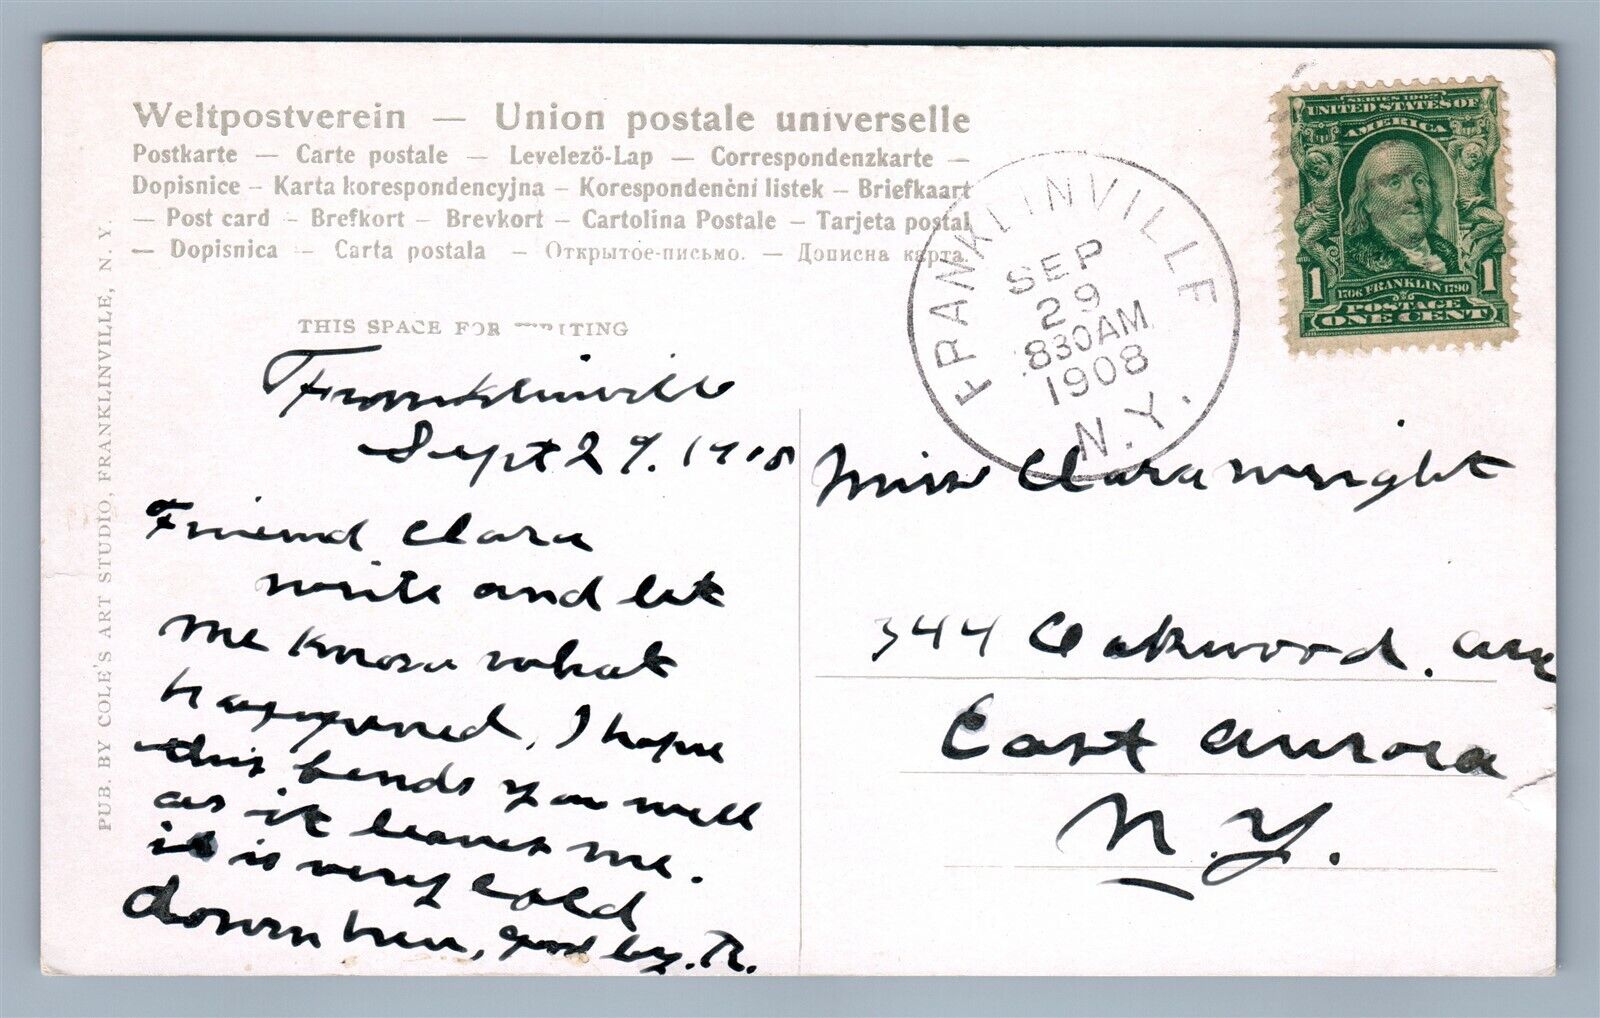 Weltpostverein — Union postale universelle
Postkarte — Carte postale — Levelező-Lap — Correspondenzkarte —
Dopisnice – Karta korespondencyjna – Korespondenční listek – Briefkaart
— Post card – Brefkort – Brevkort – Cartolina Postale – Tarjeta postal
— Dopisnica — Carta postala — Открытое-письмо. — Дописна карта.
PUB. BY COLE'S ART STUDIO, FRANKLINVILLE, N. Y.
THIS SPACE FOR WRITING
Franklinville
Sept 29. 1908
Friend Clara
write and let
me know what
happened. I hope
this bends you well
as it leaves me.
it is very cold
down here, good by. R.
FRANKLINVILLE
SEP
29
830AM
1908
N.Y.
SERIES 1902
UNITED STATES OF
AMERICA
1 1
1706 FRANKLIN 1790
POSTAGE
ONE CENT
Miss Clara Wright
344 Oakwood. ave
East Aurora
N.Y.